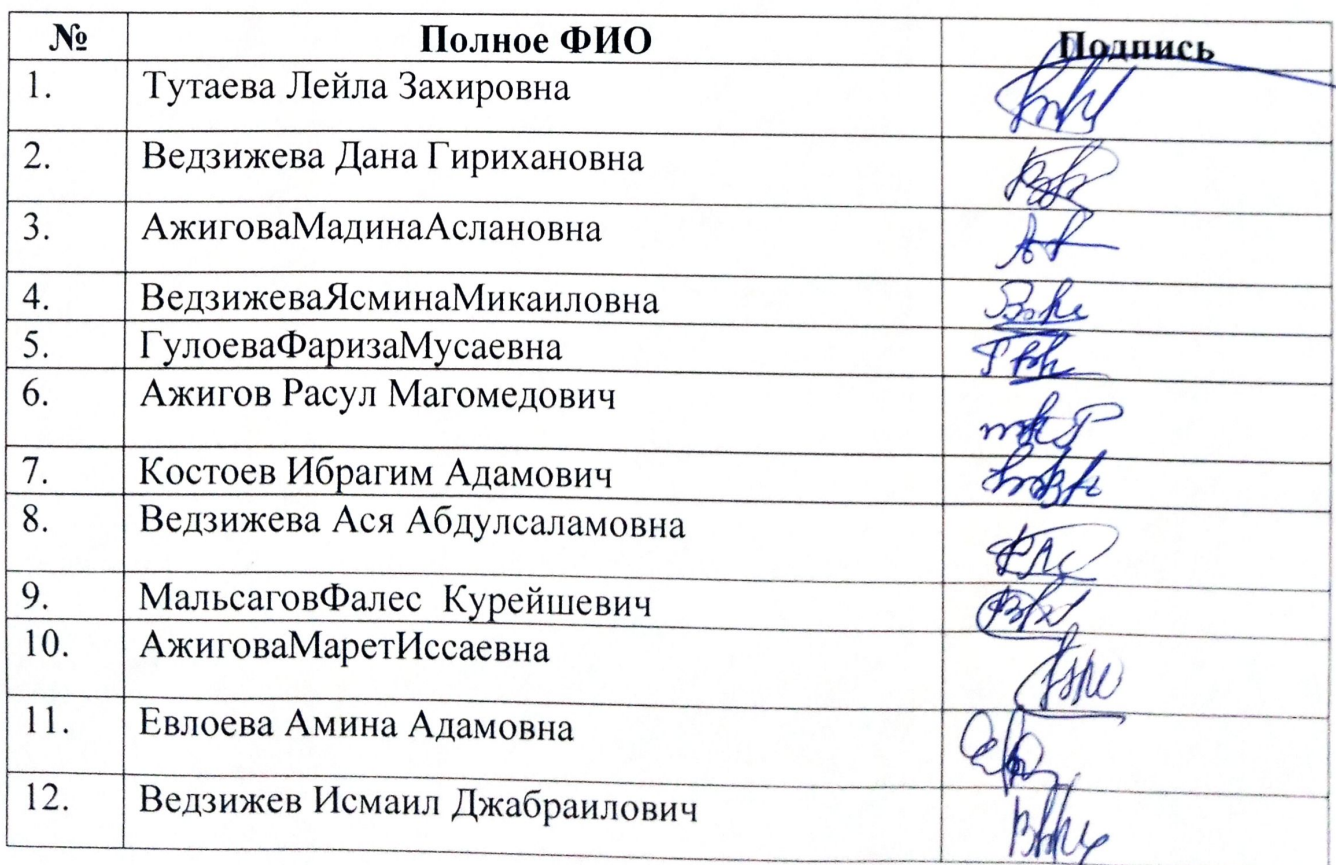 № Полное ФИО Подпись
1. Тутаева Лейла Захировна
2. Ведзижева Дана Гирихановна
3. АжиговаМадинаАслановна
4. ВедзижеваЯсминаМикаиловна
5. ГулоеваФаризаМусаевна
6. Ажигов Расул Магомедович
7. Костоев Ибрагим Адамович
8. Ведзижева Ася Абдулсаламовна
9. МальсаговФалес Курейшевич
10. АжиговаМаретИссаевна
11. Евлоева Амина Адамовна
12. Ведзижев Исмаил Джабраилович